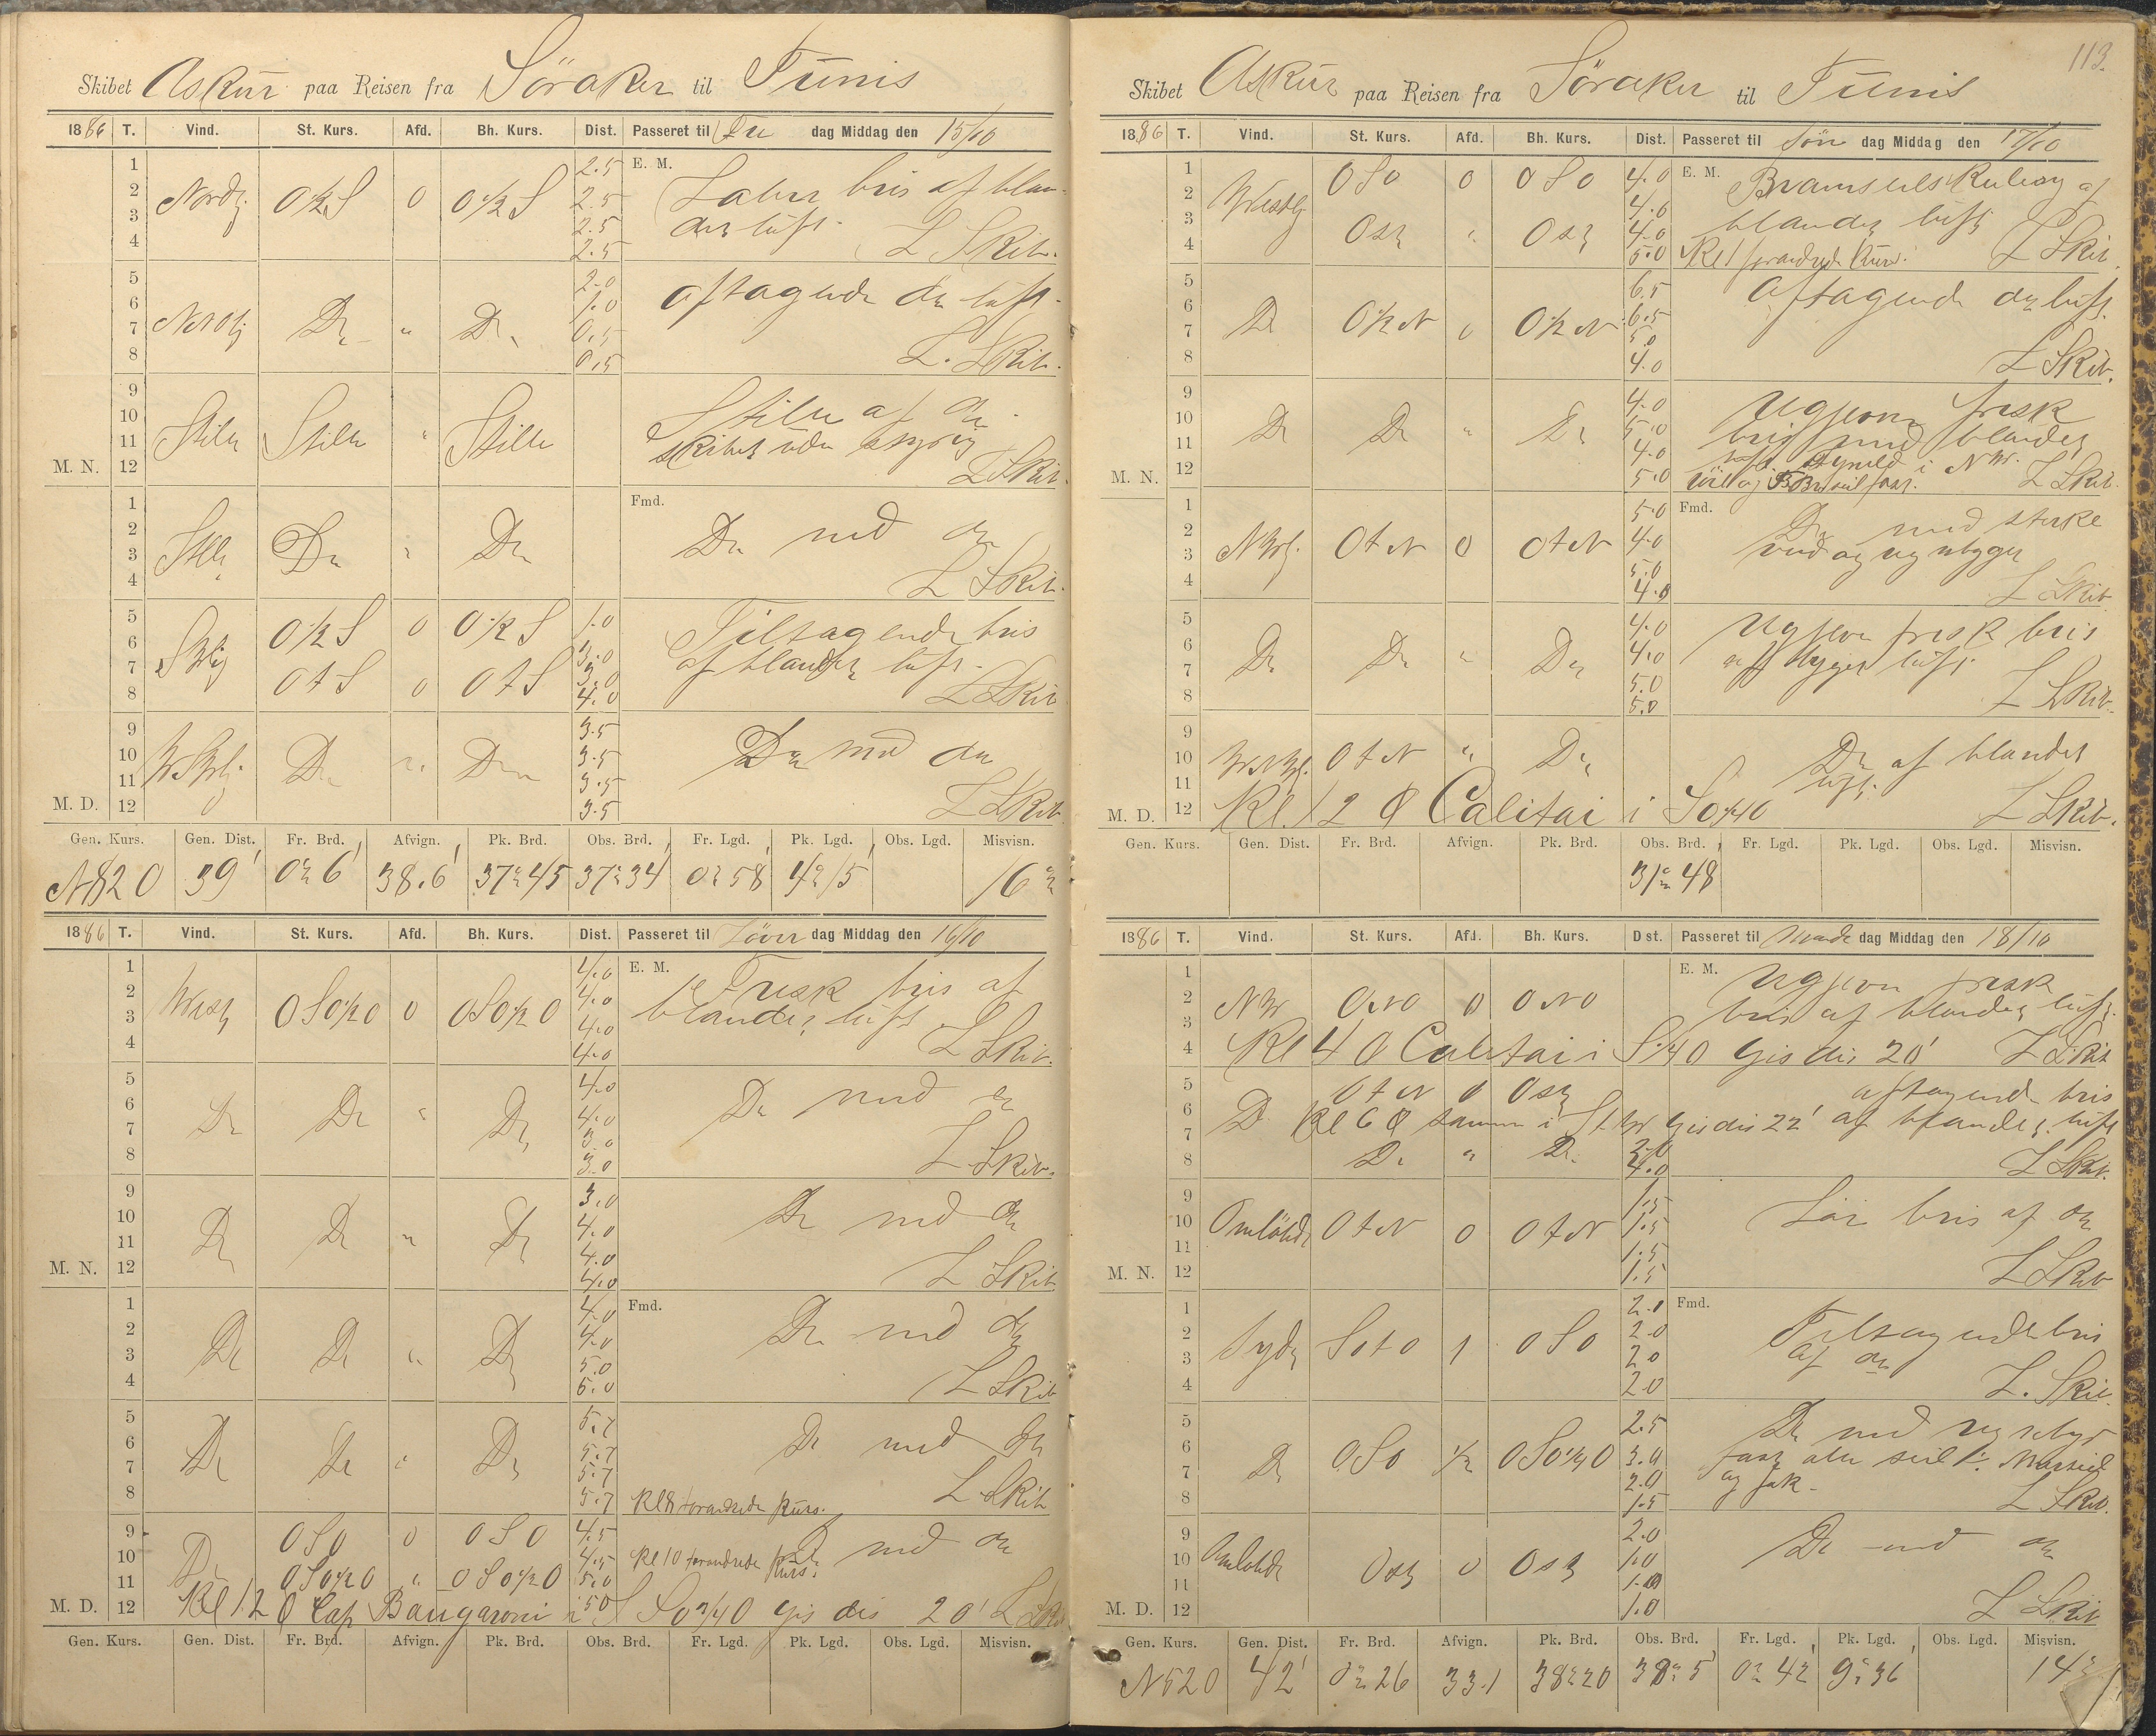 Skibet Askur paa Reisen fra Söraker til Tunis
1886 T. Vind. St. Kurs. Afd. Bh. Kurs. Dist. Passeret til Fre dag Middag den 15/10
1 2.5 E. M.
2 Nordlj O½S 0 O½S 2.5 Laber bris af blan-
3 2.5 det luft.
4 2.5 L Skib.
5 2.0 Aftagende do luft.
6 1.0
7 NNOlj Do " Do 0.5
8 0.5 L. Skib.
9 Stille af do
10
11 Stille Stille " Stille Skibet uden styring
M. N. 12 L Skib.
1 Fmd.
2 Do med do
3 Stille Do " Do
4 L Skib.
5 O½S 0 O½S 1.0 Tiltagende bris
6 3.0 af blandet luft.
7 SWlj 3.0
8 OtS 0 OtS 4.0 L Skib
9 3.5
10 WSWlj Do " Do 3.5 Do med do
11 3.5
M. D. 12 3.5 L Skib.
Gen. Kurs. Gen. Dist. Fr. Brd. Afvign. Pk. Brd. Obs. Brd. Fr. Lgd. Pk. Lgd. Obs. Lgd. Misvisn.
N82O 39' 0° 6' 38.6' 37° 45 37° 34 0° 58 4° 15' 16°
1886 T. Vind. St. Kurs. Afd. Bh. Kurs. Dist. Passeret til Löver dag Middag den 16/10
1 4.0 E. M. Frisk bris af
2 4.0 blandet luft
3 Westlj OSO½O 0 OSO½O 4.0
4 4.0 L Skib.
5 4.0
6 4.0 Do med do
7 Do Do " Do 3.0
8 3.0 L Skib.
9 3.0
10 4.0 Do med do
11 Do Do " Do 4.0
M. N. 12 4.0 L Skib
1 4.0 Fmd.
2 4.0 Do med do
3 Do Do " Do 5.0
4 5.0 L Skib
5 5.7
6 5.7 Do med do
7 Do Do " Do 5.7
8 5.7 Kl 8 forandrede Kurs. L Skib
9 OSO 0 OSO 4.5
10 4.5 Kl 10 forandrede Kurs. Do med do
11 Do OSO½O " OSO½O 5.0
M. D. 12 Kl 12 O Cap i SO¾O gis dis 20' L Skib
Gen. Kurs. Gen. Dist. Fr. Brd. Afvign. Pk. Brd. Obs. Brd. Fr. Lgd. Pk. Lgd. Obs. Lgd. Misvisn.
113.
Skibet Askur paa Reisen fra Söraker til Tunis
1886 T. Vind. St. Kurs. Afd. Bh. Kurs. Dist. Passeret til Sön dag Middag den 17/10
1 OSO 0 OSO 4.0 E. M. Bramseils Kuling af
2 Westlj 4.0 blandet luft
3 4.0
4 Ost " Ost 5.0 Kl 1 forandrede Kurs. L Skib.
5 6.5 Aftagende do luft.
6 6.5
7 Do O½N 0 O½N 5.0
8 4.0 L Skib.
9 4.0 Ugjevn frisk
10 Do Do " Do 5.0 bris med blandet
11 4.0 luft i NW.
M. N. 12 5.0 L Skib.
1 5.0 Fmd. Do med sterke
2 NWlj. OtN 0 OtN 4.0 vind og regnbyger
3 5.0
4 4.0 L Skib
5 4.0 Ugjevn frisk bris
6 4.0 af byget luft.
7 Do Do " Do 5.0
8 5.0 L Skib.
9
10 WNWlj. OtN " Do Do af blandet
11 luft.
M. D. 12 Kl. 12 O Calitai i SO¾O L Skib.
Gen. Kurs. Gen. Dist. Fr. Brd. Afvign. Pk. Brd. Obs. Brd. Fr. Lgd. Pk. Lgd. Obs. Lgd. Misvisn.
31° 48
1886 T. Vind. St. Kurs. Afd. Bh. Kurs. Dist. Passeret til Man dag Middag den 18/10
1 E. M. Ugjevn frisk
2 NW ONO 0 ONO bris af blandet luft.
3
4 Kl 4 O Calitai i S¼O gis dis 20' L Skib
5 OtN 0 Ost aftagende bris
6 Do Kl 6 O samme i gis dis 22' af blandet luft
7
8 Do " Do 4.0 L Skib.
9 1.5
10 Omlöbde OtN 0 OtN 1.5 Lör bris af do
11 1.5
M. N. 12 1.5 L Skib
1 2.0 Fmd.
2 Sydlj SOtO 1 OSO 2.0 Tiltagende bris
3 2.0 af do
4 2.0 L. Skib.
5 2.5 Do med regnbyer
6 3.0
7 Do OSO ½ OSO½O 2.0
8 1.5 L Skib.
9 2.0
10 Omlöbde 1.0 Do med do
11 Ost 0 Ost 1.0
M. D. 12 1.0 L Skib
Gen. Kurs. Gen. Dist. Fr. Brd. Afvign. Pk. Brd. Obs. Brd. Fr. Lgd. Pk. Lgd. Obs. Lgd. Misvisn.
N52O 42' 0° 26 33.1 38° 20 38° 5' 0° 42 9° 36' 14°